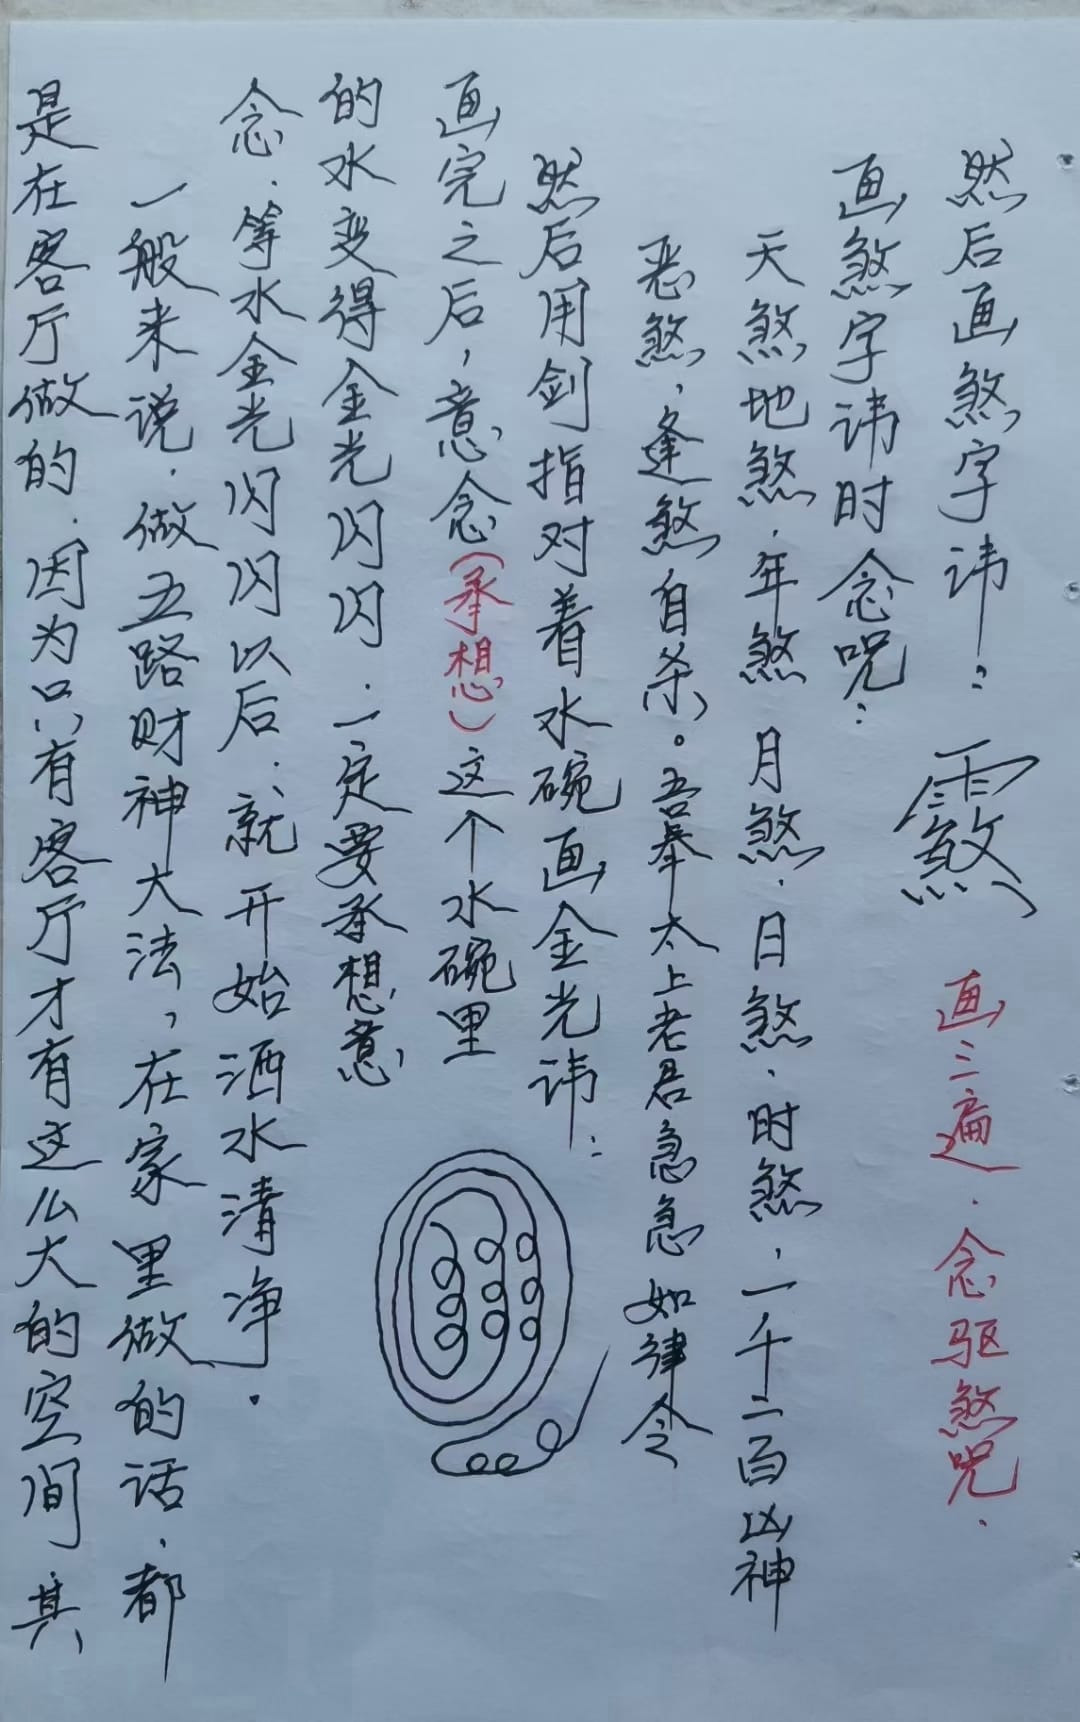 然后画煞字讳：䨾 画三遍．念驱煞咒．
画煞字讳时念咒：
天煞地煞．年煞 月煞．日煞．时煞，一千二百凶神
恶煞，逢煞自杀。吾奉太上老君急急如律令
然后用剑指对着水碗画金光讳：
画完之后，意念（承想）这个水碗里
的水变得金光闪闪．一定要承想意
念．等水金光闪闪以后．就开始洒水清净．
一般来说．做五路财神大法，在家里做的话．都
是在客厅做的．因为只有客厅才有这么大的空间 其